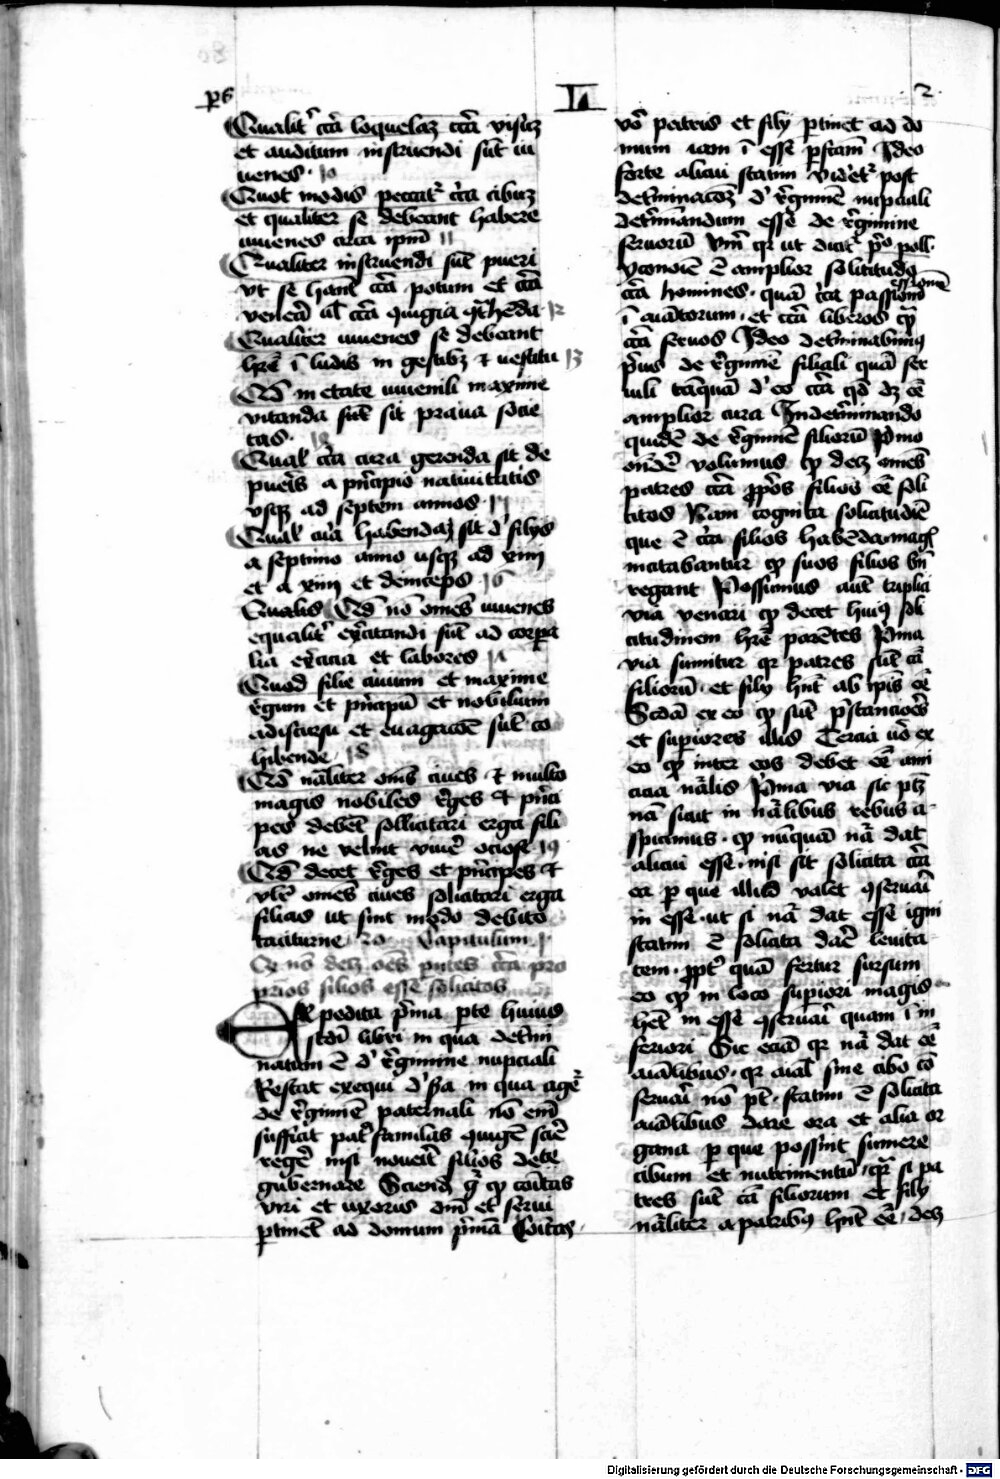 ps L 2
Qualit̉ cc̄a loquelaꝫ cc̄a visūꝫ
et auditum instruendi sūt iu
uenes · 10
Quot modis peccatʳ cc̄a cibuꝫ
et qualiter se debeant habere
iuuenes circa ipm̄ 11
Qualiter instruendi sūt pueri
vt se hant̄ cc̄a potum et cc̄a
Qualiter iuuenes se debeant
hr̄e ī ludis in gestibꝫ ⁊ vestitu 13
Qd̄ in etate iuuenili maxime
vitanda sūt sit praua socie
tas · 14
Qual̓ cc̄a cura gerenda sit de
pueris a pn̄cipio natiuitatis
vsqꝫ ad septem annos · 15
Qual̓ cura habendaꝫ sit d̓ filijs
a septimo anno usqꝫ ad xiiii
et a xiiii et deinceps 16
Qualis Qd̄ nō omēs iuuenes
equalit̉ ex̉citandi sūt ad corpa
lia ex̉citia et labores 17
Quod filie ciuium et maxime
r̓gum et pn̄cipū et nobilium
a discursu et euagacōe sūt co
hibende 18
Qd̄ nāliter om̄s ciues ⁊ multo
magis nobiles r̓ges ⁊ pn̄ci
pes debēt sollicitari erga fili
as ne velint viuē ociose 19
Qd̄ decet r̓ges et pn̄cipes ⁊
vl̓r omēs ciues solicitari erga
filias ut sint modo debito
taciturne 20 Capitulum 1
Qꝫ nō deꝫ oēs pates cc̄a pro
prios filios esse solicitos
Expedita p̄ma pte huius
scdi libri in qua detmi
natum ē d̓ r̓gimine nupciali
Restat exequi d̓ scd̄a in qua agr̄
de r̓gimine paternali nō em̄
sufficit pat̓familias ꝯiugē sciē
regē nisi nouerit filios dete
gubernare Sciend̄ gͦ qꝫ cōitas
viri et uxoris dn̄i et serui
ptinet ad domum p̄mā Cōitas
vō patris et filij ptinet ad do
mum iam ī esse pfectam Ideo
forte alicui statim videt̓ post
det̓minacōeꝫ d̓ r̓gimine nupciali
det̓minandum esse de r̓gimine
seruorū Vm̄ qꝛ ut dicit̓ pͦ poll·
yconomie ē amplior solicitudo
cc̄a homines · quā cc̄a possessionē
ī aīatorum · et cc̄a liberos qꝫ
cc̄a seruos Ideo det̓minabimꝰ
p̓us de r̓gimine filiali quā ser
uili tāquā d̓ eo cc̄a qd̄ dꝫ eē
amplior cura In det̓minando
quidē de r̓gimine filiorū p̓mo
ondē volumus qꝫ deꝫ omēs
patres cc̄a ꝓpos filios eē soli
citos Nam cognita solicitudīe
que ē cc̄a filios habēda · mag̓
incitabantur qꝫ suos filios bn̄
regant Possumus aut̄ triplici
via venari qꝫ decet huiꝰ soli
citudinem hr̄e parētes P̓ma
via sumitur qꝛ patres sūt cā
filiorū · et filij hn̄t ab ip̄is eē
Scd̄a ex eo qꝫ sūt p̄stanciores
et supiores illis Tercia uō ex
eo qꝫ inter eos debet eē ami
cicia nālis P̓ma via sic ptꝫ
nā sicut in nālibus rebus a
spicimus · qꝫ nūquā nā dat
alicui esse · nisi sit solicita cc̄a
ea p que illud valet ꝯseruari
in esse · ut si nā dat esse igni
statim ē solicita daē leuita
tem · ꝓpt̓ quā fertur sursum
eo qꝫ in loco supiori magis
het in esse ꝯseruari quam ī in
feriori Sic eciā qꝛ nā dat eē
aīatibus · qꝛ aīal sine cibo cō
seruari nō pt̄ · statim ē solicita
aīatibus dare ora et alia or
gana p que possint sumere
cibum et nutrimentū · qꝛ si pa
tres sūt cā filiorum et filij
nāliter a patribꝰ hn̄t eē · deꝫ
Digitalisierung gefördert durch die Deutsche Forschungsgemeinschaft - DFG